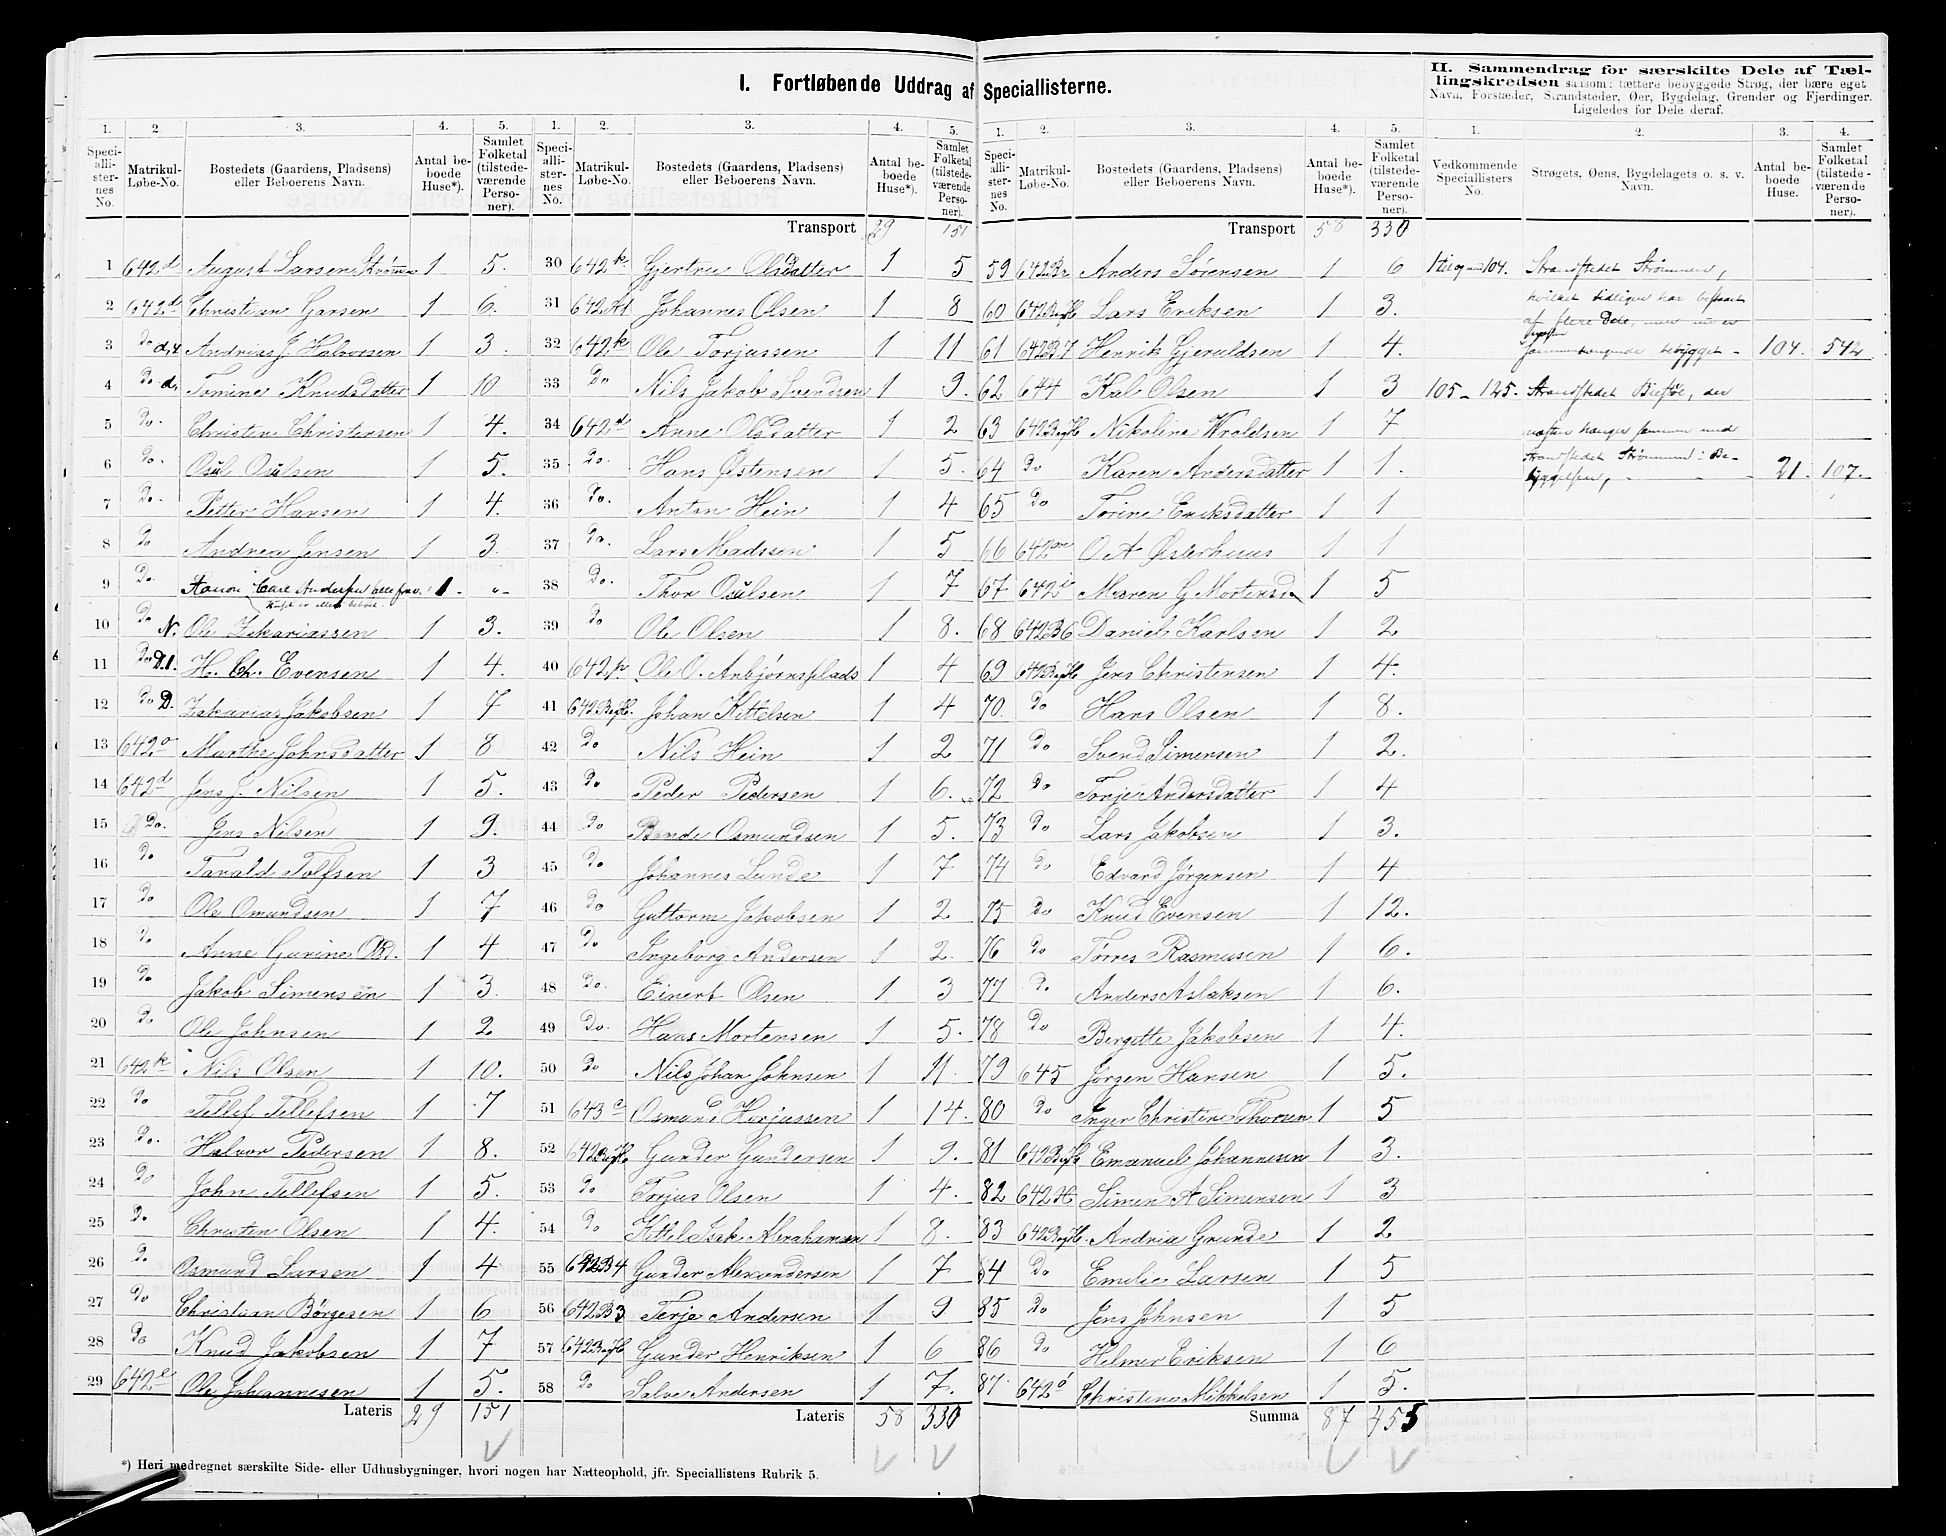 I. Fortløbende Uddrag af Speciallisterne.
II. Sammendrag for særskilte Dele af Tællingskredsen saasom: tættere bebyggede Strøg, der bære eget
Navn, Forstæder, Strandsteder, Øer, Bygdelag, Grender og Fjerdinger.
Ligeledes for Dele deraf.
1. 2. 3. 4. 5.
Speciallisternes No. Matrikul-Løbe-No. Bostedets (Gaardens, Pladsens) eller Beboerens Navn. Antal beboede Huse*). Samlet Folketal (tilstedeværende Personer).
1 642d August Larsen Strømmen 1 5.
2 642d Christian Garsen 1 6.
3 Do d,4 Andrias J Halvorsen 1 3.
4 Do. d, Tomine Knudsdatter 1 10
5 Do. Christen Christensen 1 4.
6 Do. Osul Osulsen 1 5.
7 Do. Petter Hansen 1 4.
8 Do Andrea Jensen 1 3.
9 Do. Carl Andersen 1. "
10 Do N. Ole Zakariassen 1 3.
11 Do D1. H. Ch. Evensen 1 4.
12 Do D. Zakarias Jakobsen 1 7
13 642o Marthe Johnsdatter 1 8
14 642d Jens J. Nilsen 1 5.
15 Do. Jens Nilsen 1 9.
16 Do Tarald Tolfsen 1 3
17 Do Ole Omundsen 1 7
18 Do Anne Gurine Olsd. 1 4
19 Do Jakob Simensen 1 3.
20 Do Ole Johnsen 1 2
21 642k Nils Olsen 1 10.
22 Do Tellef Tellefsen 1 7
23 Do. Halvor Pedersen 1 8.
24 Do John Tellefsen 1 5.
25 Do Christen Olsen 1 4.
26 Do Osmund Larsen 1 4
27 Do Christian Børgesen 1 6
28 Do Knud Jakobsen 1 7
29 642e Ole Johannesen 1 5.
Lateris 29 151
1. 2. 3. 4. 5.
Speciallisternes No. Matrikul-Løbe-No. Bostedets (Gaardens, Pladsens) eller Beboerens Navn. Antal beboede Huse*). Samlet Folketal (tilstedeværende Personer).
Transport 29 151
30 642k Gjertru Olsdatter 1 5
31 642 Johannes Olsen 1 8
32 642k Ole Torjussen 1 11
33 Do Nils Jakob Svendsen 1 9.
34 642d Anne Olsdatter 1 2
35 Do. Hans Østensen 1 5.
36 Do. Anton Hein 1 4
37 Do. Lars Madssen 1 5
38 Do. Thor Osulsen 1 7
39 Do Ole Olsen 1 8.
40 642 Ole O. Anbjørnsplads 1 4
41 642 Johan Kittelsen 1 4
42 Do Nils Hein 1 2
43 Do Peder Pedersen 1 6.
44 Do Bende Osmundsen 1 5.
45 Do Johannes Lunde 1 7
46 Do Guttorm Jakobsen 1 2
47 Do Ingeborg Andersen 1 2.
48 Do. Einert Olsen 1 3
49 Do. Hans Mortensen 1 5.
50 Do Nils Johan Johnsen 1 11.
51 643 Osmund Torjussen 1 14.
52 642 Gunder Gundersen 1 9.
53 Do Torjus Olsen 1 4.
54 Do Kittel Isak Abrahamsen 1 8.
55 642B4 Gunder Alexandersen 1 7
56 642B3 Terje Andersen 1 9
57 642 Gunder Henriksen 1 6
58 Do Salve Andersen 1 7.
Lateris 58 330
1. 2. 3. 4. 5.
Speciallisternes No. Matrikul-Løbe-No. Bostedets (Gaardens, Pladsens) eller Beboerens Navn. Antal beboede Huse*). Samlet Folketal (tilstedeværende Personer).
Transport 58 330
59 642 Anders Sørensen 1 6
60 642 Lars Eriksen 1 3.
61 642B.7 Henrik Gjeruldsen 1 4.
62 644 Kal Olsen 1 3
63 642 Nikoline Wroldsen 1 7
64 Do Karen Andersdatter 1 1.
65 Do Torine Eriksdatter 1 1
66 642m O A Østerhuus 1 1
67 642i Maren G Mortensd 1 5
68 642B6 Daniel Karlsen 1 2
69 642 Jens Christensen 1 4.
70. Do Hans Olsen 1 8.
71 Do Svend Simensen 1 2.
72 Do Torje Andersdatter 1 4
73 Do Lars Jakobsen 1 3.
74 Do Edvard Jørgensen 1 4
75 Do Knud Evensen 1 12.
76 Do Tørres Rasmusen 1 6.
77 Do Anders Aslaksen 1 6.
78 Do Bergitte Jakobsen 1 4.
79 645 Jørgen Hansen 1 5.
80 Do Inger Christine Thorsen 1 5
81 642 Emanuel Johannesen 1 3.
82 642H Simen A Simensen 1 3
83 642 Andrea Grunde 1 2
84 Do Emilie Larsen 1 5
85 Do Jens Johnsen 1 5
86 Do Helmer Eriksen 1 6
87. 642 Christine Mikkelsen 1 5.
Summa 87 455
1. 2. 3. 4.
Vedkommende Speciallisters No. Strøgets, Øens, Bygdelagets o. s. v. Navn. Antal beboede Huse. Samlet Folketal (tilstedeværende Personer).
1 til og med 104. Strandstedet Strømmen,
hvilket tidligere har bestaaet
af flere Dele, men nu er
sammenhængende bebygget - 104. 542
105 - 125. Strandstedet
næsten hænger sammen med
Strandstedet Strømmen i Be-
byggelsen, - 21. 107.
*) Heri medregnet særskilte Side- eller Udhusbygninger, hvori nogen har Natteophold, jfr. Speciallistens Rubrik 5.